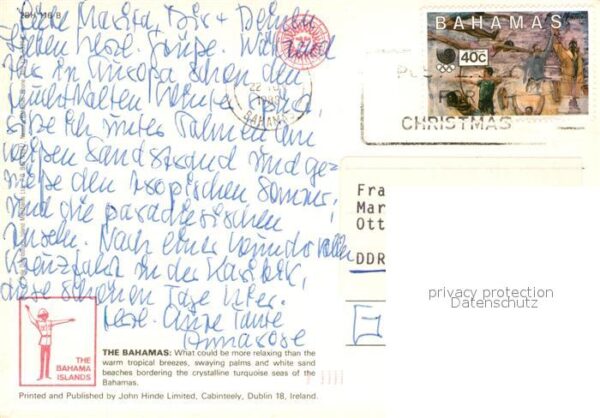 2BH 116 B
Liebe Marita, Dir + Deinen
lieben herzl. Grüße. Während
Ihr in Europa schon den
naßkalten Winter
sitze ich unter Palmen am
weißen Sandstrand und ge=
nieße den tropischen Sommer,
und die paradiesischen
Inseln. Nach einer wundervollen
Kreuzfahrt in der Karibik,
diese schönen Tage
herzl. Tante
Annarose
BAHAMAS
40C
22
BAHAMAS
FOR
CHRISTMAS
Fra
Mar
Ott
DDR
privacy protection
Datenschutz
THE
BAHAMA
ISLANDS
THE BAHAMAS: What could be more relaxing than the
warm tropical breezes, swaying palms and white sand
beaches bordering the crystalline turquoise seas of the
Bahamas.
Printed and Published by John Hinde Limited, Cabinteely, Dublin 18, Ireland.